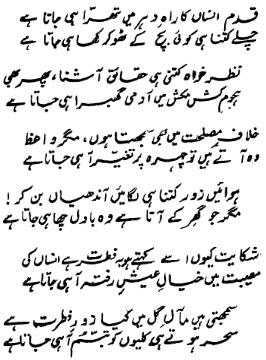 قدم انساں کا راہِ دہر میں تھرّا ہی جاتا ہے
چلے کتنا ہی کوئی بچ کے ٹھوکر کھا ہی جاتا ہے
نظر خواہ کتنی ہی حقائق آشنا، پھر بھی
ہجومِ کشمکش میں آدمی گھبرا ہی جاتا ہے
خلافِ مصلحت میں بھی سمجھتا ہوں، مگر واعظ
وہ آتے ہیں تو چہرہ پر تغیر آ ہی جاتا ہے
ہوائیں زور کتنا ہی لگائیں آندھیاں بن کر!
مگر جو گھر کے آتا ہے وہ بادل چھا ہی جاتا ہے
شکایت کیوں اسے کہتے ہو یہ فطرت ہے انساں کی
مصیبت میں خیالِ عیشِ رفتہ آ ہی جاتا ہے
سمجھتی ہیں مآلِ گل میں کیا زورِ فطرت ہے
سحر ہوتے ہی کلیوں کو تبسم آ ہی جاتا ہے